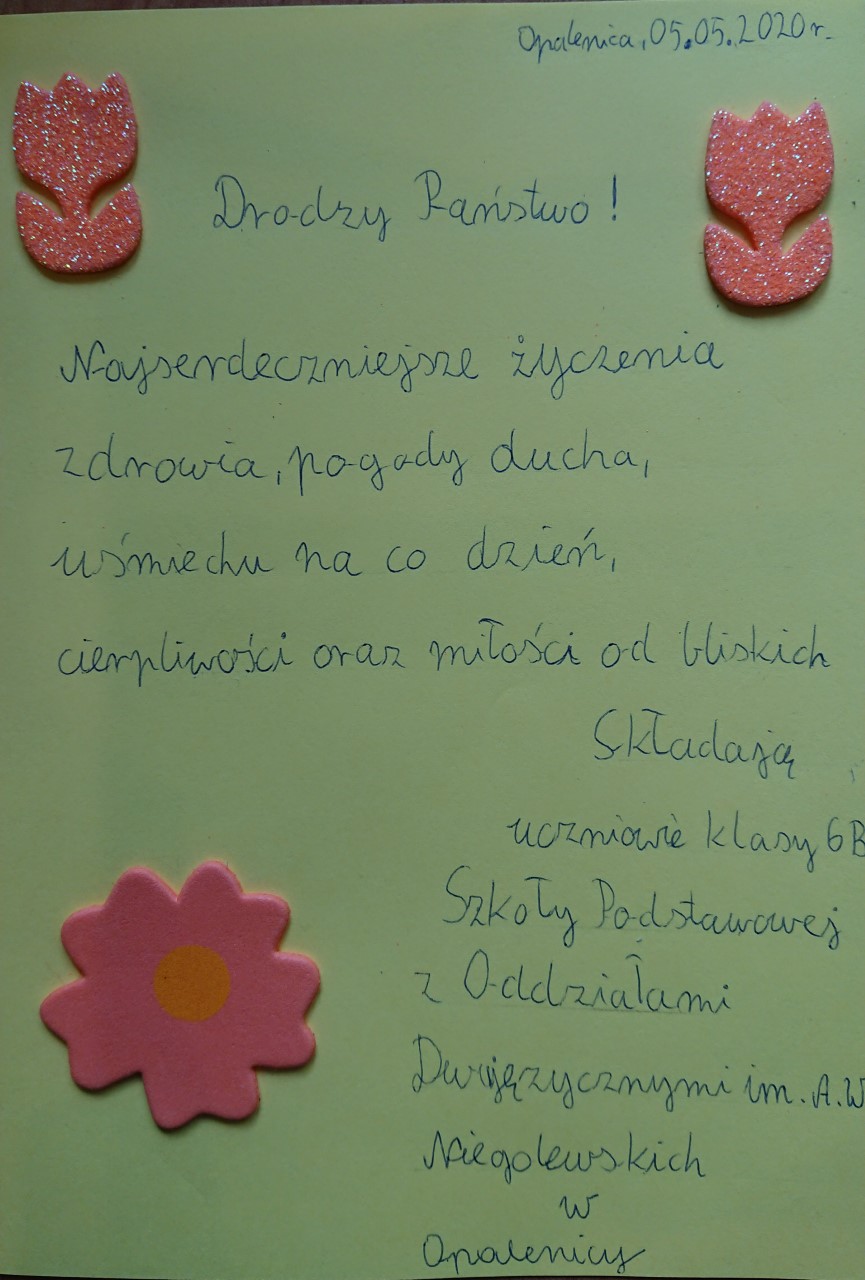 Opalenica, 05.05.2020r.
Drodzy Państwo!
Najserdeczniejsze życzenia
zdrowia, pogody ducha,
uśmiechu na co dzień,
cierpliwości oraz miłości od bliskich
Składają
uczniowie klasy 6B
Szkoły Podstawowej
z Oddziałami
Dwujęzycznymi im. A.W
Niegolewskich
w
Opalenicy